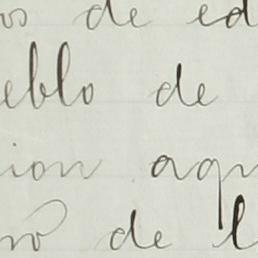 os de ed
eblo de
ion aqu
no de l